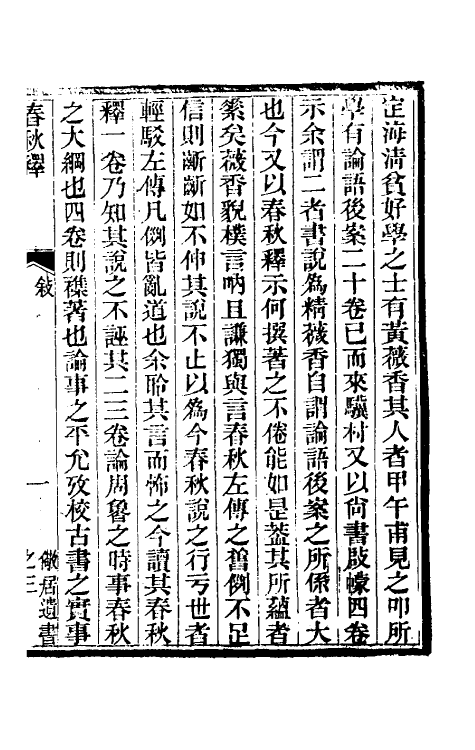 定海淸貧好學之士有黃薇香其人者甲午甫見之叩所
學有論語後案二十卷已而來驥村又以尙書啟幪四卷
示余謂二者書說為精薇香自謂論語後案之所係者大
也今又以春秋釋示何撰著之不倦能如是葢其所蘊者
絫矣薇香貌樸言吶且謙獨與言春秋左傳之舊例不足
信則齗齗如不伸其說不止以為今春秋說之行亏世者
輕駁左傳凡例皆亂道也余聆其言而怖之今讀其春秋
釋一卷乃知其說之不誣其二三卷論周魯之時事春秋
之大綱也四卷則襍著也論事之平允攷校古書之實事
春秋釋
敍
一
儆居遺書
之三